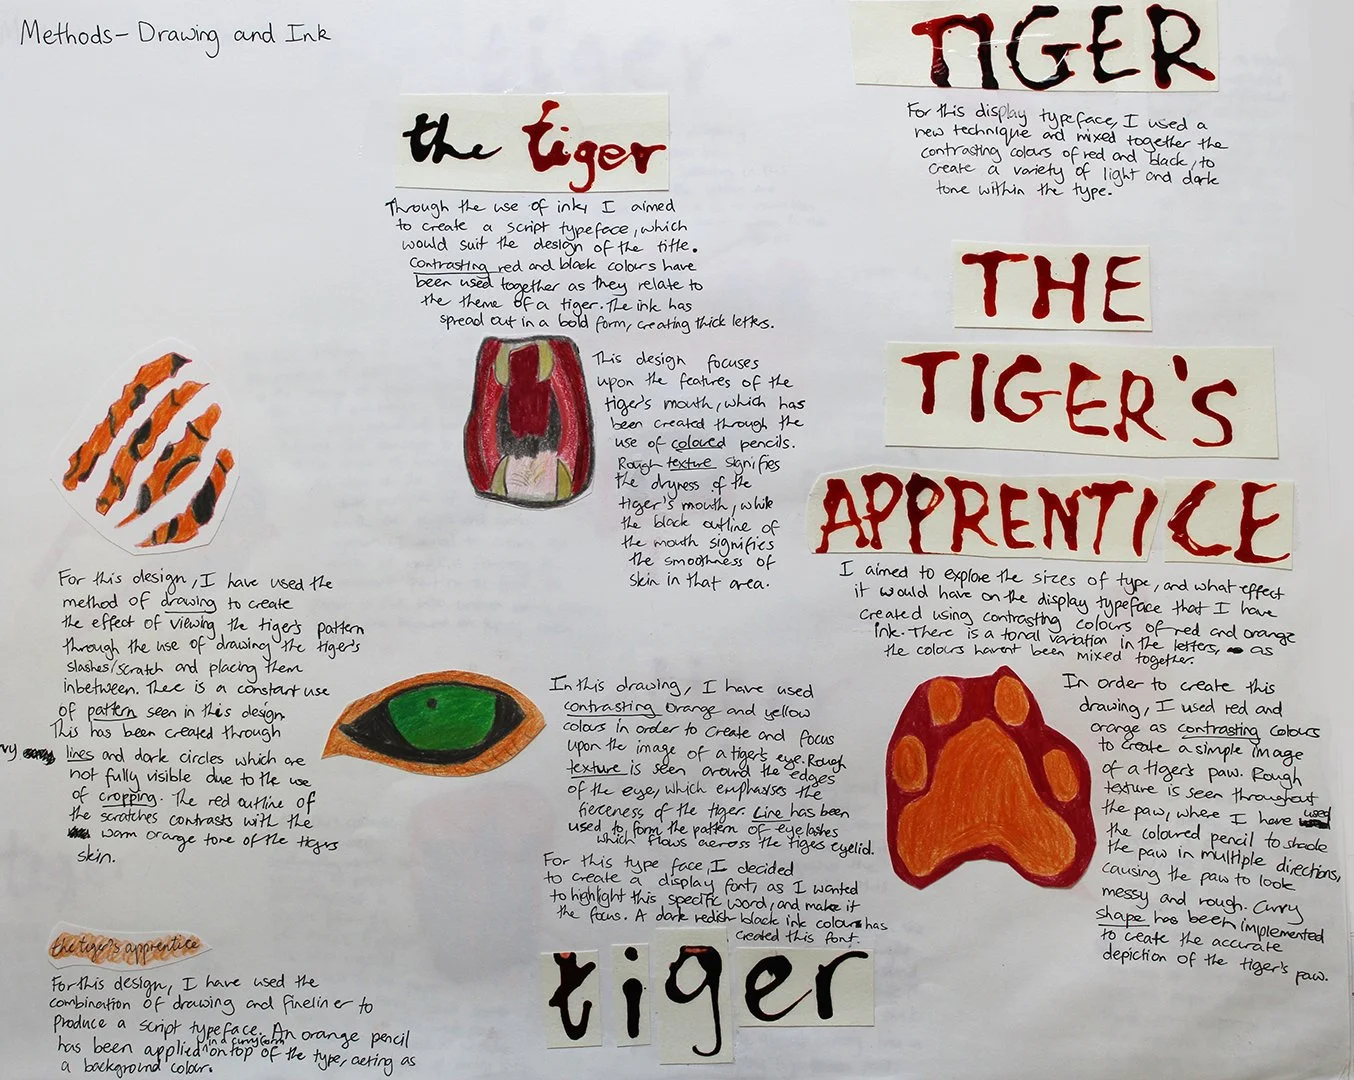 Methods - Drawing and Ink
TIGER
For this display typeface, I used a
new technique and mixed together the
contrasting colours of red and black, to
create a variety of light and dark
tone within the type.
the tiger
Through the use of ink, I aimed
to create a script typeface, which
would suit the design of the title.
Contrasting red and black colours have
been used together as they relate to
the theme of a tiger. The ink has
spread out in a bold form, creating thick letters.
THE
TIGER'S
APPRENTICE
I aimed to explore the sizes of type, and what effect
it would have on the display typeface that I have
created using contrasting colours of red and orange
ink. There is a tonal variation in the letters, as
the colours havent been mixed together.
This design focuses
upon the features of the
tiger's mouth, which has
been created through the
use of coloured pencils.
Rough texture signifies
the dryness of the
tiger's mouth, while
the black outline of
the mouth signifies
the smoothness of
skin in that area.
For this design, I have used the
method of drawing to create
the effect of viewing the tiger's pattern
through the use of drawing the tiger's
slashes/scratch and placing them
inbetween. There is a constant use
of pattern seen in this design
This has been created through
lines and dark circles which are
not fully visible due to the use
of cropping. The red outline of
the scratches contrasts with the
warm orange tone of the tigers
skin.
In this drawing, I have used
contrasting orange and yellow
colours in order to create and focus
upon the image of a tiger's eye. Rough
texture is seen around the edges
of the eye, which emphasises the
fierceness of the tiger. Line has been
used to form the pattern of eyelashes
which flows across the tigers eyelid.
In order to create this
drawing, I used red and
orange as contrasting colours
to create a simple image
of a tiger's paw. Rough
texture is seen throughout
the paw, where I have used
the coloured pencil to shade
the paw in multiple directions,
causing the paw to look
messy and rough. Curvy
shape has been implemented
to create the accurate
depiction of the tiger's paw.
For this type face, I decided
to create a display font, as I wanted
to highlight this specific word, and make it
the focus. A dark redish black ink colour has
created this font.
tiger
the tiger's apprentice
For this design, I have used the
combination of drawing and fineliner to
produce a script typeface. An orange pencil
has been applied in a curvy form on top of the type, acting as
a background colour.